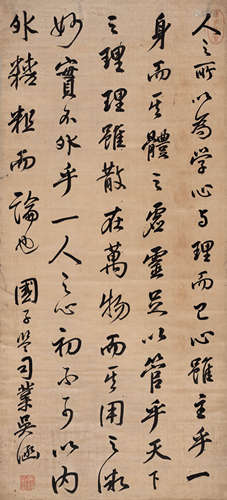 人之所以為学心与理而已心雖主乎一
身而其體之虛靈足以管乎天下
之理理雖散在萬物而其用之微
妙實不外乎一人之心初不可以内
外精粗而論也 國子監司業吳涵